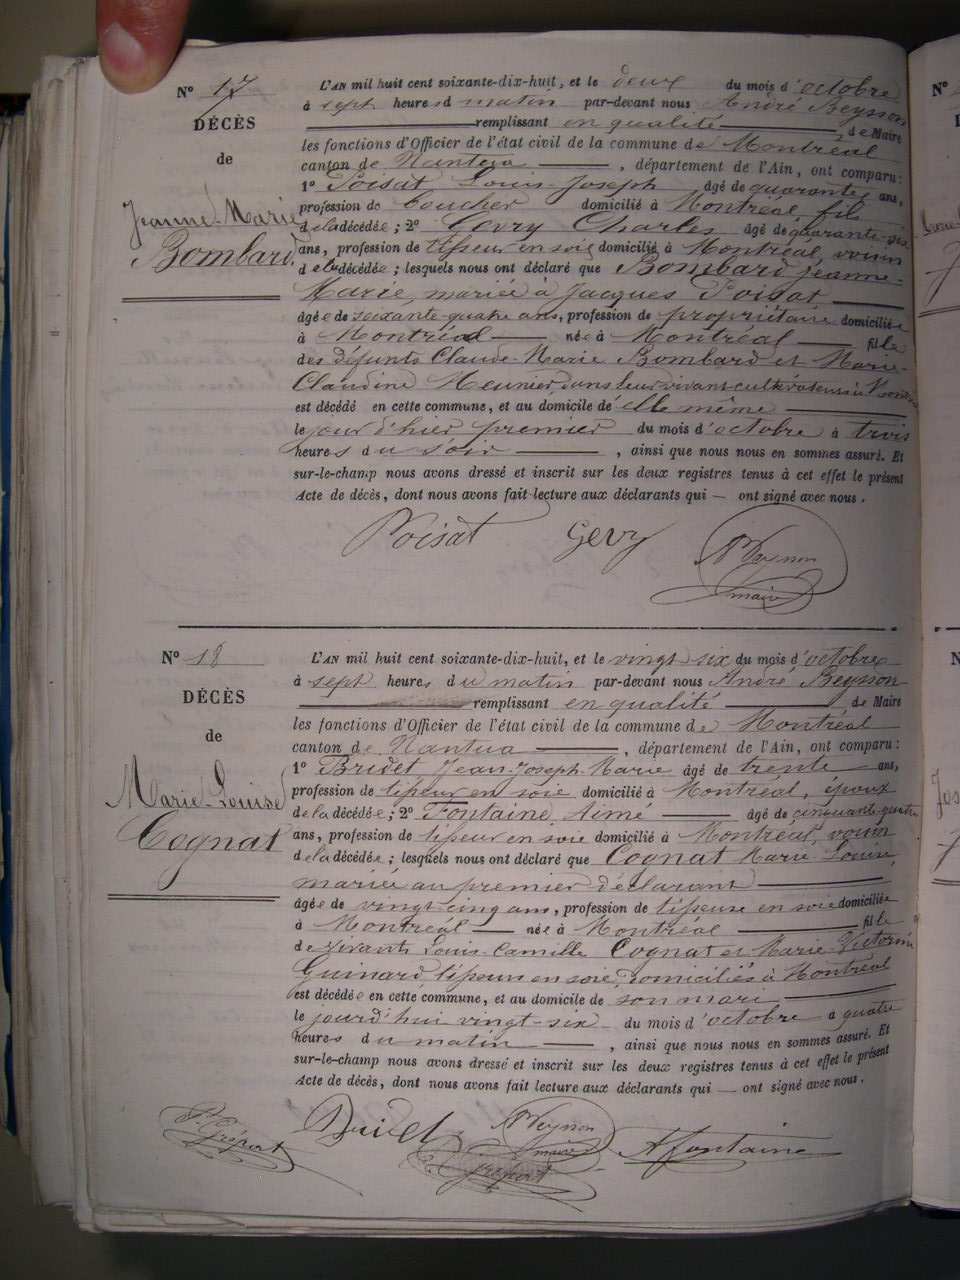 N° 17
DÉCÈS
de
Jeanne-Marie
Bombard
L'AN mil huit cent soixante-dix-huit, et le deux du mois d'octobre
à sept heures d matin par-devant nous André Beysson
remplissant en qualité de Maire
les fonctions d'Officier de l'état civil de la commune de Montréal
canton de Nantua, département de l'Ain, ont comparu :
1° Poisat Louis-Joseph âgé de quarante ans,
profession de boucher domicilié à Montréal, fils
de la décédée ; 2° Gevry Charles âgé de quarante-six
ans, profession de tisseur en soie domicilié à Montréal, voisin
de la décédée ; lesquels nous ont déclaré que Bombard Jeanne-
Marie, mariée à Jacques Poisat
âgée de soixante-quatre ans, profession de propriétaire domiciliée
à Montréal née à Montréal fille
des défunts Claude-Marie Bombard et Marie-
Claudine Meunier dans leur vivant cultivateurs à
est décédé en cette commune, et au domicile de elle même
le jour d'hier premier du mois d'octobre à trois
heures du soir, ainsi que nous nous en sommes assuré. Et
sur-le-champ nous avons dressé et inscrit sur les deux registres tenus à cet effet le présent
Acte de décès, dont nous avons fait lecture aux déclarants qui — ont signé avec nous.
Poisat Gevry Beysson
maire
N° 18
DÉCÈS
de
Marie-Louise
Cognat
L'AN mil huit cent soixante-dix-huit, et le vingt six du mois d'octobre
à sept heures du matin par-devant nous André Beysson
remplissant en qualité de Maire
les fonctions d'Officier de l'état civil de la commune de Montréal
canton de Nantua, département de l'Ain, ont comparu :
1° Bridet Jean-Joseph-Marie âgé de trente ans,
profession de tisseur en soie domicilié à Montréal, époux
de la décédée ; 2° Fontaine Aimé âgé de cinquante-quatre
ans, profession de tisseur en soie domicilié à Montréal, voisin
de la décédée ; lesquels nous ont déclaré que Cognat Marie-Louise,
mariée au premier déclarant
âgée de vingt-cinq ans, profession de tisseuse en soie domiciliée
à Montréal née à Montréal fille
de vivants Louis-Camille Cognat et Marie Victorine
Guinard, tisseurs en soie, domiciliés à Montréal
est décédée en cette commune, et au domicile de son mari
le jourd'hui vingt-six du mois d'octobre à quatre
heures du matin, ainsi que nous nous en sommes assuré. Et
sur-le-champ nous avons dressé et inscrit sur les deux registres tenus à cet effet le présent
Acte de décès, dont nous avons fait lecture aux déclarants qui — ont signé avec nous.
Bridet Beysson
maire
A Fontaine